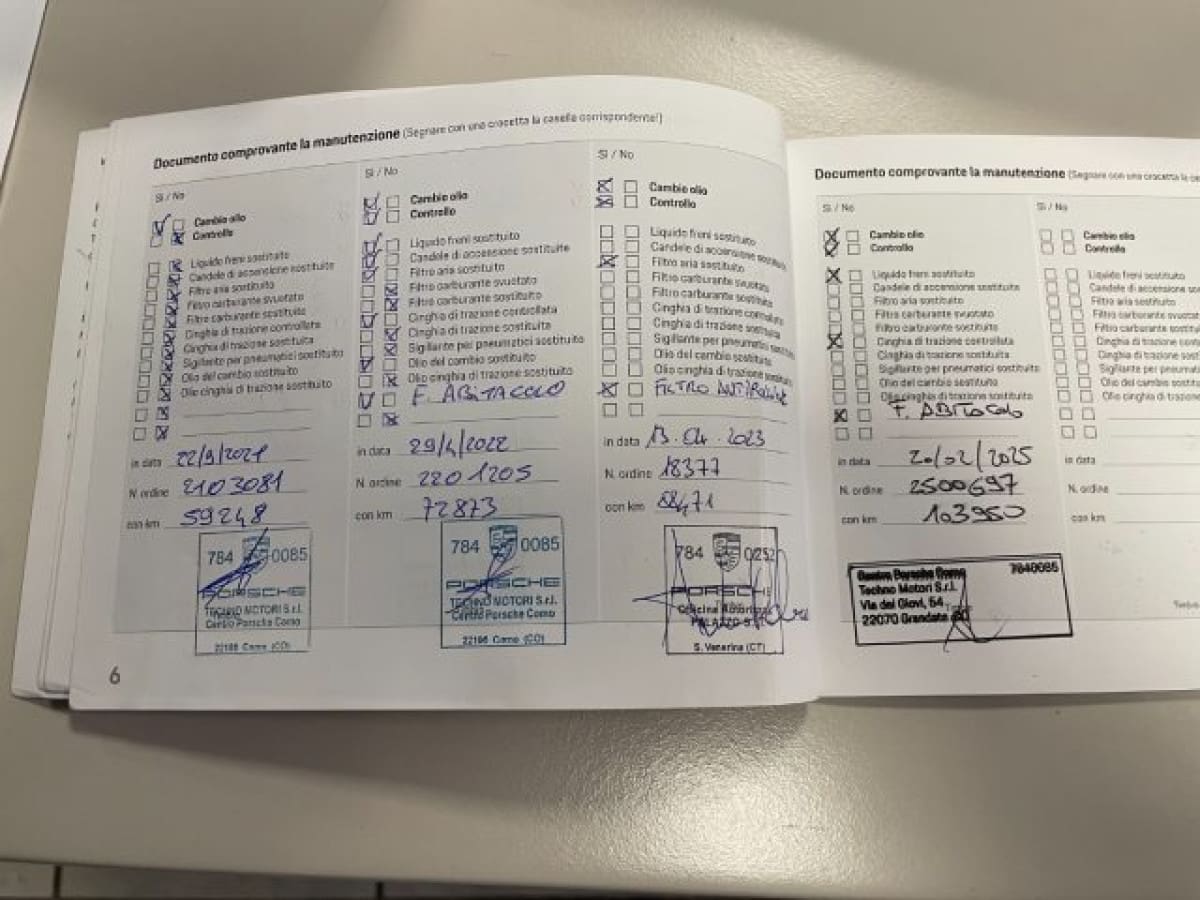 Documento comprovante la manutenzione (Segnare con una crocetta la casella corrispondente!)
Sì / No
Cambio olio
Controllo
Liquido freni sostituito
Candele di accensione sostituite
Filtro aria sostituito
Filtro carburante svuotato
Filtro carburante sostituito
Cinghia di trazione controllata
Cinghia di trazione sostituita
Sigillante per pneumatici sostituito
Olio del cambio sostituito
Olio cinghia di trazione sostituito
in data 22/9/2021
N. ordine 2103081
con km 59248
784 0085
PORSCHE
TECHNO MOTORI S.r.l.
Centro Porsche Como
22100 Como (CO)
Sì / No
Cambio olio
Controllo
Liquido freni sostituito
Candele di accensione sostituite
Filtro aria sostituito
Filtro carburante svuotato
Filtro carburante sostituito
Cinghia di trazione controllata
Cinghia di trazione sostituita
Sigillante per pneumatici sostituito
Olio del cambio sostituito
Olio cinghia di trazione sostituito
F. ABITACOLO
in data 29/4/2022
N. ordine 2201205
con km 72873
784 0085
PORSCHE
TECHNO MOTORI S.r.l.
Centro Porsche Como
22100 Como (CO)
Sì / No
Cambio olio
Controllo
Liquido freni sostituito
Candele di accensione sostituite
Filtro aria sostituito
Filtro carburante svuotato
Filtro carburante sostituito
Cinghia di trazione controllata
Cinghia di trazione sostituita
Sigillante per pneumatici sostituito
Olio del cambio sostituito
Olio cinghia di trazione sostituito
FILTRO
in data 13.04.2023
N. ordine 18377
con km
784 0252
PORSCHE
Officina
S. Venerina (CT)
6
Documento comprovante la manutenzione (Segnare con una crocetta la ce
Sì / No
Cambio olio
Controllo
Liquido freni sostituito
Candele di accensione sostituite
Filtro aria sostituito
Filtro carburante svuotato
Filtro carburante sostituito
Cinghia di trazione controllata
Cinghia di trazione sostituita
Sigillante per pneumatici sostituito
Olio del cambio sostituito
Olio cinghia di trazione sostituito
F. ABITACOLO
in data 20/02/2025
N. ordine 2500697
con km 103950
Centro Porsche Como 7840085
Techno Motori S.r.l.
Via dei Giovi, 54
22070 Grandate
Sì / No
Cambio olio
Controllo
Liquido freni sostituito
Candele di accensione sostitu
Filtro aria sostituito
Filtro carburante svuotat
Filtro carburante sostitu
Cinghia di trazione contr
Cinghia di trazione sosti
Sigillante per pneumatici
Olio del cambio sostituito
Olio cinghia di trazione s
in data
N. ordine
con km